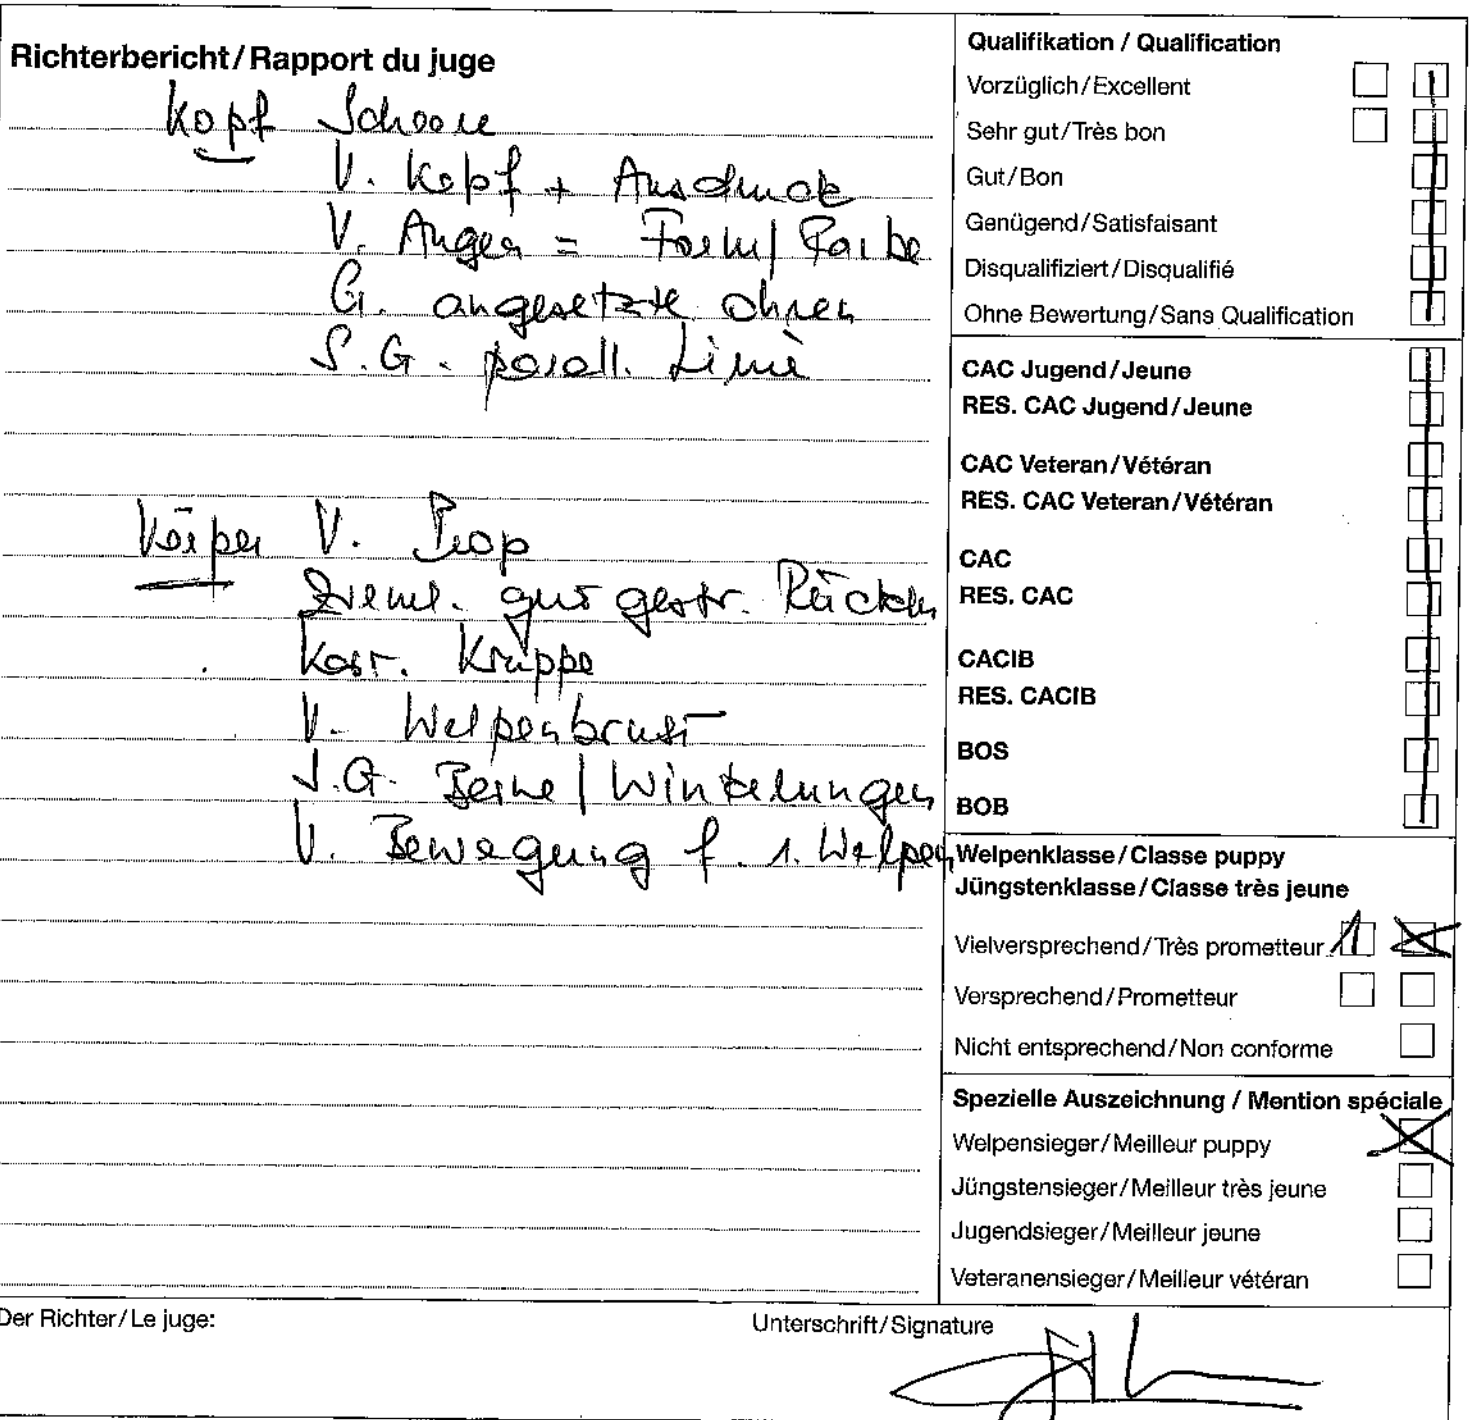 Richterbericht/Rapport du juge
Kopf Schoene
V. Kopf + Ausdruck
V. Augen = Form/Farbe
G. angesetzte Ohren
S.G. parall. Linie
Körper V. Prop
Zieml. gut gestr. Rücken
Korr. Kruppe
V. Welpenbrust
S.G. Beine/Winkelungen
V. Bewegung f. 1. Welpen
Qualifikation / Qualification
Vorzüglich/Excellent
Sehr gut/Très bon
Gut/Bon
Genügend/Satisfaisant
Disqualifiziert/Disqualifié
Ohne Bewertung/Sans Qualification
CAC Jugend/Jeune
RES. CAC Jugend/Jeune
CAC Veteran/Vétéran
RES. CAC Veteran/Vétéran
CAC
RES. CAC
CACIB
RES. CACIB
BOS
BOB
Welpenklasse/Classe puppy
Jüngstenklasse/Classe très jeune
Vielversprechend/Très prometteur 1
Versprechend/Prometteur
Nicht entsprechend/Non conforme
Spezielle Auszeichnung / Mention spéciale
Welpensieger/Meilleur puppy
Jüngstensieger/Meilleur très jeune
Jugendsieger/Meilleur jeune
Veteranensieger/Meilleur vétéran
Der Richter/Le juge:
Unterschrift/Signature